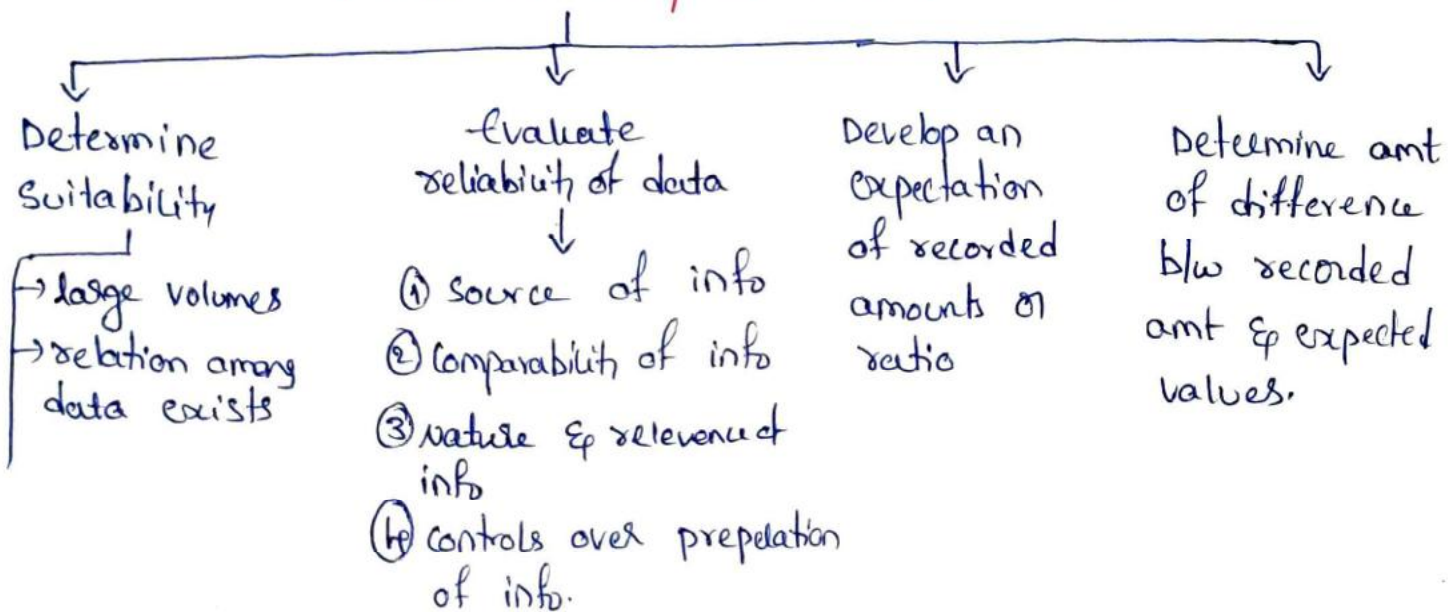 Determine
Suitability
→ large volumes
→ relation among
data exists
Evaluate
reliability of data
① Source of info
② Comparability of info
③ Nature & relevence of
info
④ controls over prepelation
of info.
Develop an
expectation
of recorded
amounts or
ratio
Determine amt
of difference
b/w recorded
amt & expected
values.